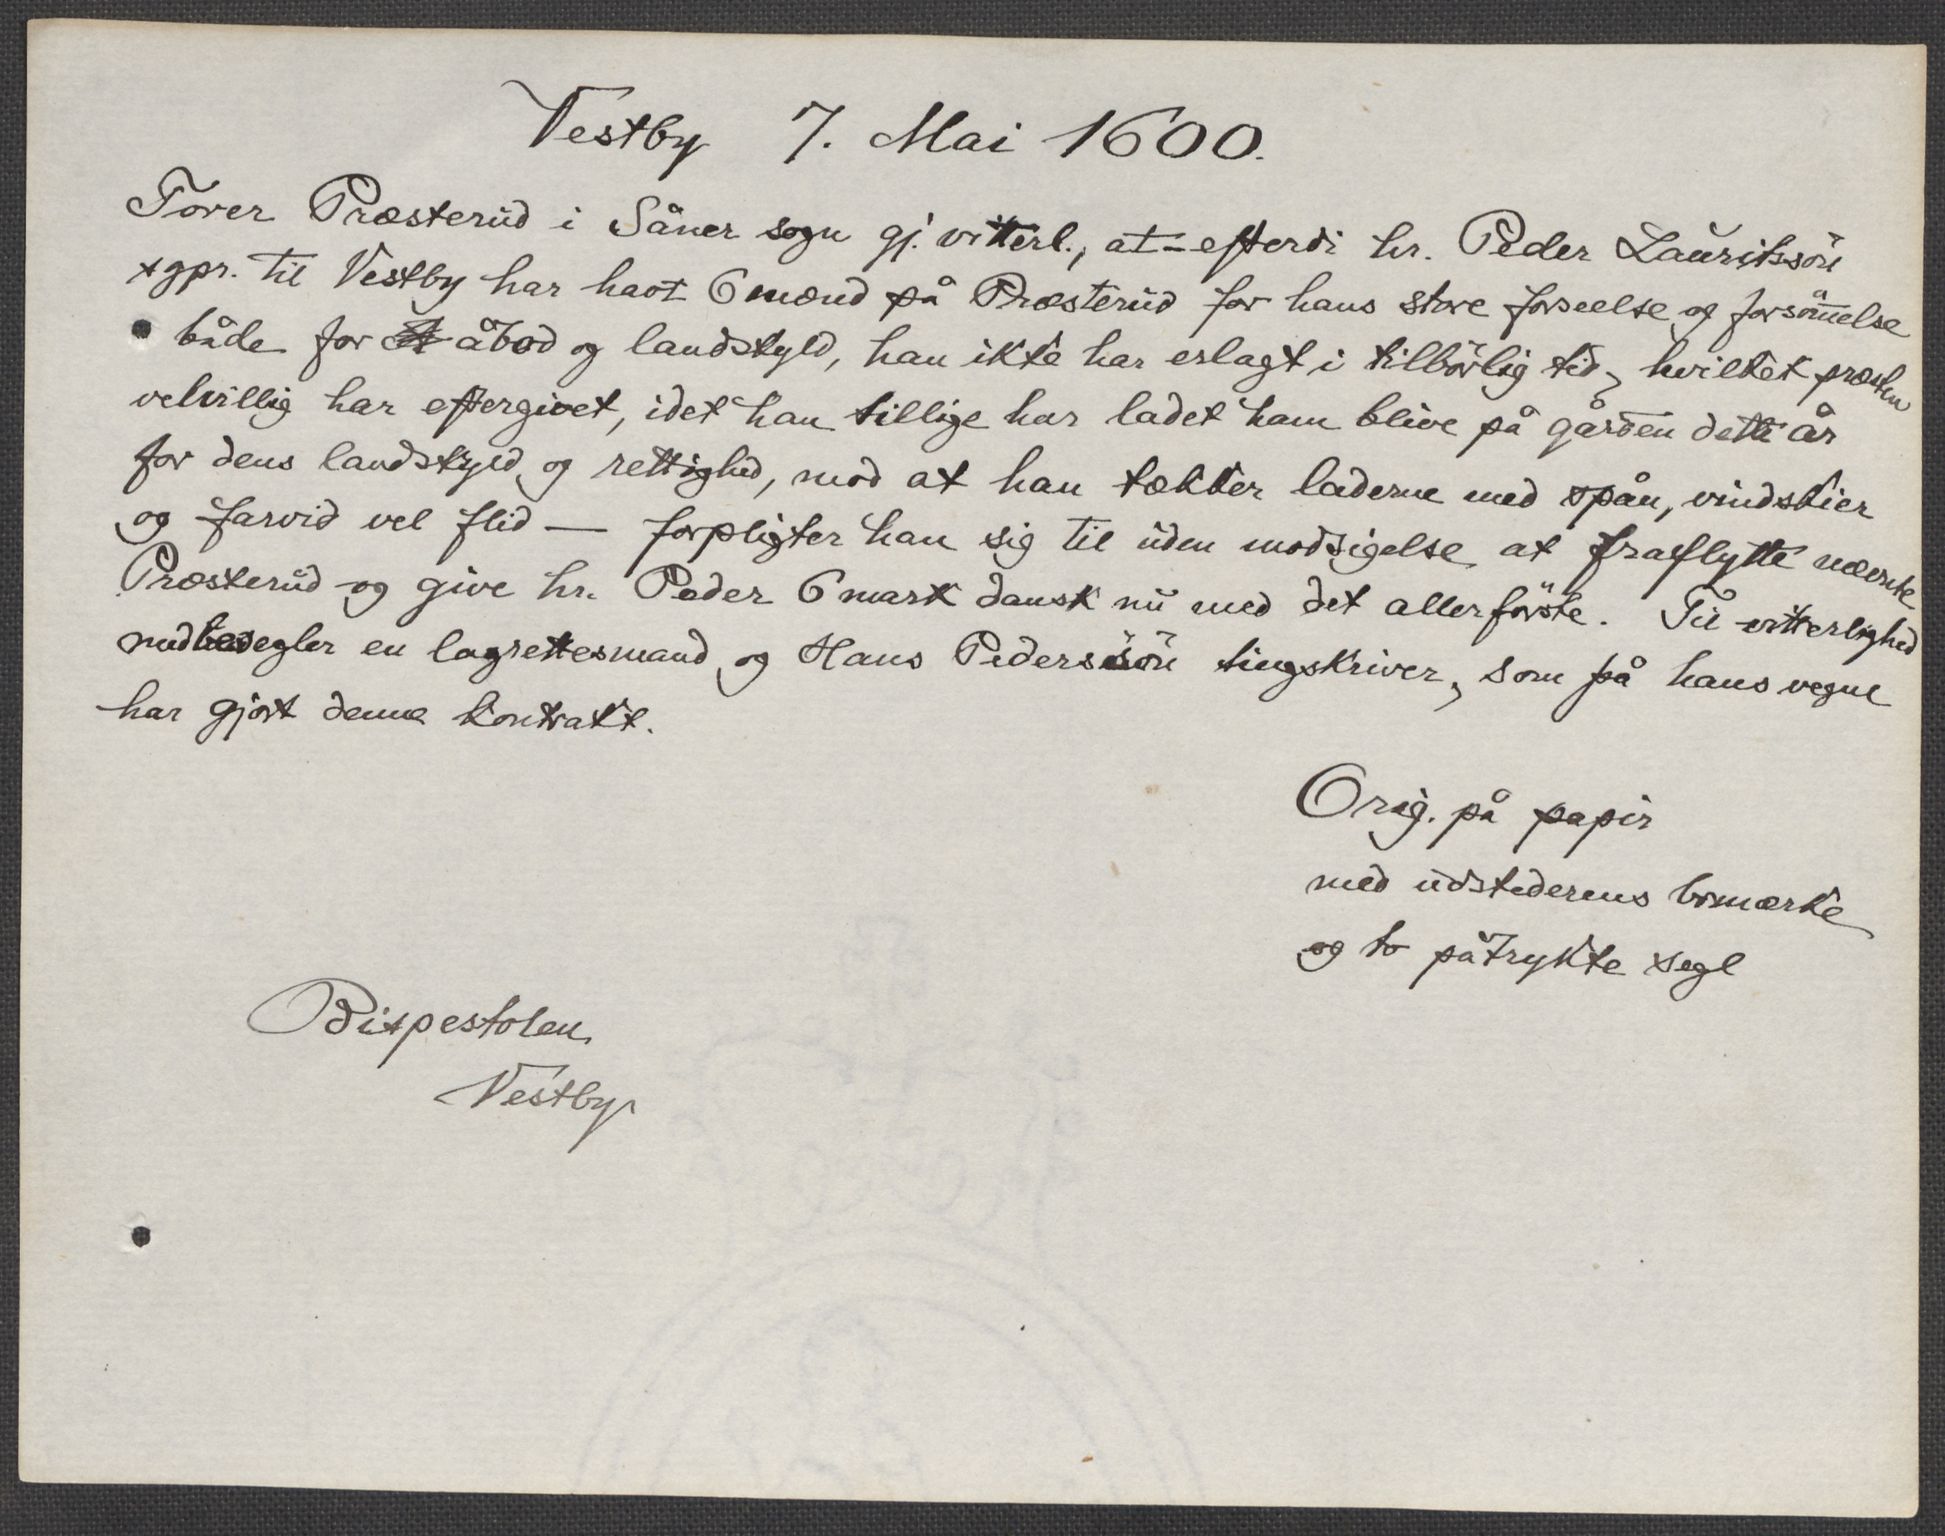 Vestby 7. Mai 1600.
Torer Præsterud i Såner sogn gj. vitterl., at – efterdi hr. Peder Lauritssön
sgpr. til Vestby har havt 6 mænd på Præsterud for hans store forseelse og forsömelse
både for åbod og landskyld, han ikke har erlagt i tilbörlig tid, hvilket præsten
velvillig har eftergivet, idet han tillige har ladet ham blive på gården dette år
for dens landskyld og rettighed, mod at han tækker laderne med spån, vindskier
og farvid vel flid — forpligter han sig til uden modsigelse at fraflytte nævnte
Præsterud og give hr. Peder 6 mark dansk nu med det allerförste. Til vitterlighed
medbesegler en lagrettesmand og Hans Pederssön tingskriver, som på hans vegne
har gjort denne kontrakt.
Orig. på papir
med udstederens bomærke
og to påtrykte segl
Bispestolen
Vestby